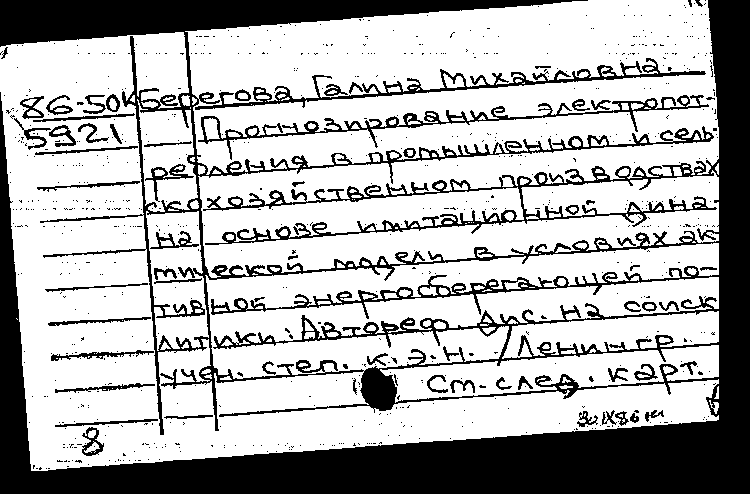 86-50к Берегова, Галина Михайловна.
5921 Прогнозирование электропот-
ребления в промышленном и сель-
скохозяйственном производствах
на основе имитационной дина-
мической модели в условиях ак-
тивной энергосберегающей по-
литики: Автореф. дис. на соиск
учен. степ. к.э.н. / Ленингр.
См. след. карт.
8